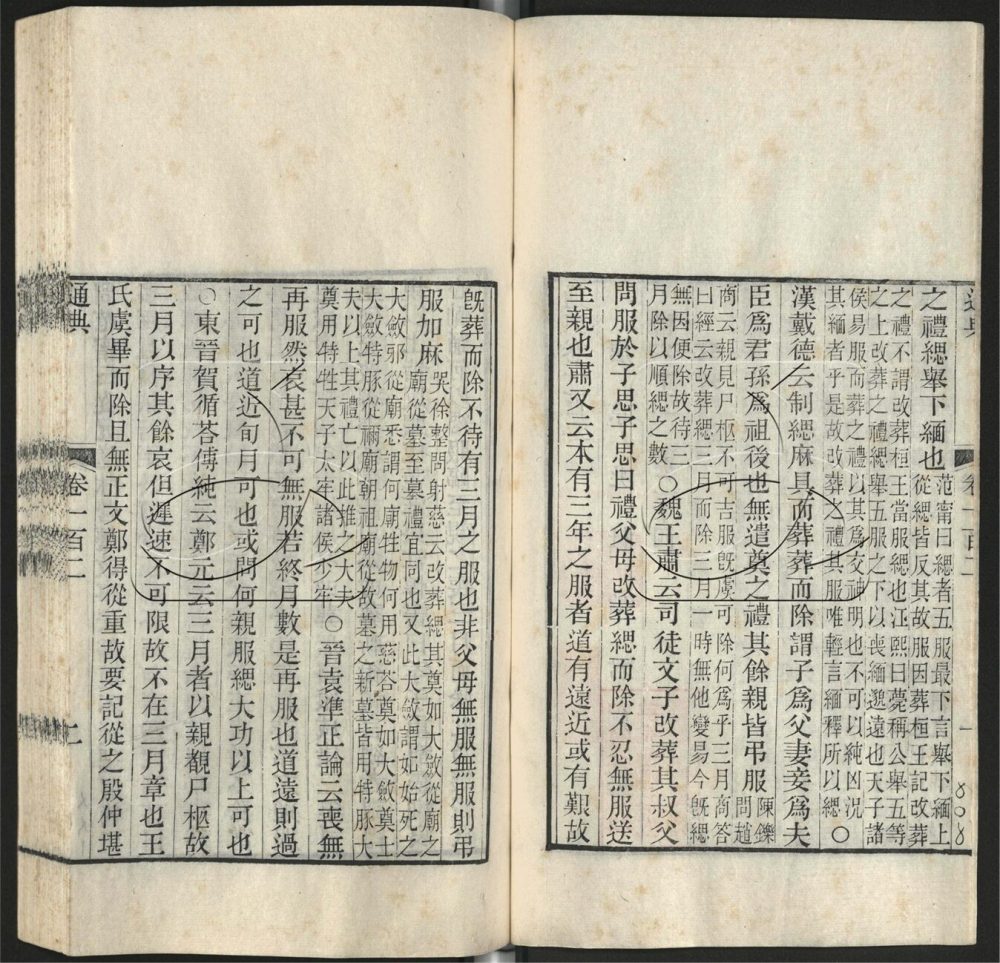 通典　卷一百二　一
8008
之禮緦舉下緬也
范甯曰緦者五服最下言舉下緬上
從緦皆反其故服因葬桓王記改葬
之禮不謂改葬桓王當服緦也江熙曰薨稱公舉五等
之上改葬之禮緦舉五服之下以喪緬邈遠也天子諸
侯易服而葬之禮以其爲交神明也不可以純凶況
其緬者乎是故改葬之禮其服唯輕言緬釋所以緦
○
漢戴德云制緦麻具而葬葬而除謂子爲父妻妾爲夫
臣爲君孫爲祖後也無遣奠之禮其餘親皆弔服
陳鑠
問趙
商云親見尸柩不可吉服旣虞可除何爲乎三月商答
曰經云改葬緦三月而除三月一時無他變易今旣緦
無因便除故待三
月除以順緦之數
○魏王肅云司徒文子改葬其叔父
問服於子思子思曰禮父母改葬緦而除不忍無服送
至親也肅又云本有三年之服者道有遠近或有艱故
旣葬而除不待有三月之服也非父母無服無服則弔
服加麻
哭徐整問射慈云改葬緦其奠如大斂從廟之
廟從墓至墓禮宜同也又此大斂謂如始死之
大斂邪從廟悉謂何廟牲物何用慈答奠如大斂奠士
大斂特豚從禰廟朝祖廟從故墓之新墓皆用特豚大
夫以上其禮亡以此推之大夫
奠用特牲天子太牢諸侯少牢
○晉袁準正論云喪無
再服然哀甚不可無服若終月數是再服也道遠則過
之可也道近旬月可也或問何親服緦大功以上可也
○東晉賀循荅傅純云鄭元云三月者以親覩尸柩故
三月以序其餘哀但遲速不可限故不在三月章也王
氏虞畢而除且無正文鄭得從重故要記從之殷仲堪
通典　卷一百二